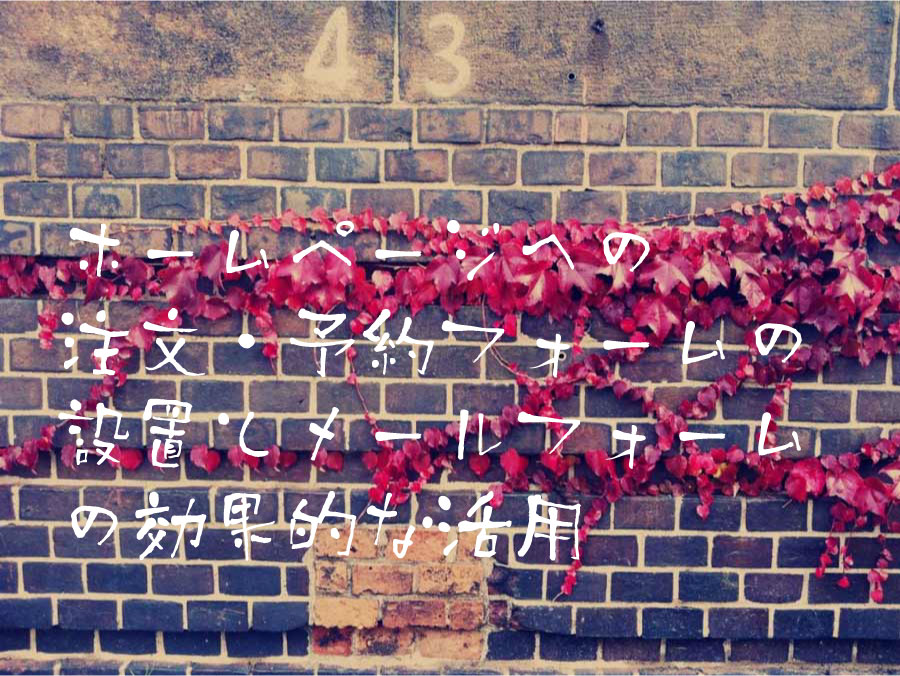 43
ホームページへの
注文・予約フォームの
設置とメールフォーム
の効果的な活用